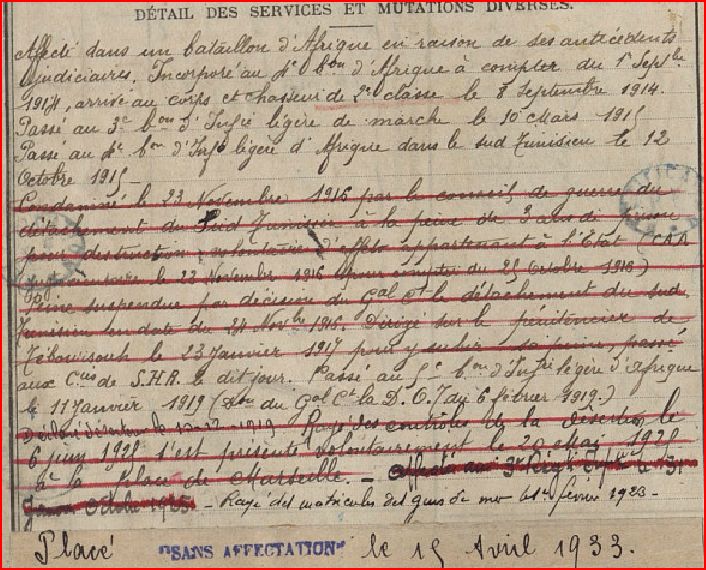 DÉTAIL DES SERVICES ET MUTATIONS DIVERSES.
Affecté dans un bataillon d'Afrique en raison de ses antécédents
judiciaires. Incorporé au 4e bon d'Afrique à compter du 1er Septbre
1914, arrivé au corps et chasseur de 2e classe le 8 Septembre 1914.
Passé au 3e bon d'Infie légère de marche le 10 Mars 1915
Passé au 4e bon d'Infie légère d'Afrique dans le sud Tunisien le 12
Octobre 1915
Condamné le 23 Novembre 1916 par le conseil de guerre du
détachement du Sud Tunisien à la peine de 3 ans de
pour destruction volontaire d'effets appartenant à l'Etat
le 23 Novembre 1916 pour compter du 25 Octobre 1916)
Peine suspendue par décision du Gal Ct le détachement du sud
Tunisien en date du 24 Novbre 1916. Dirigé sur le pénitencier de
Téboursouk le 23 Janvier 1917 pour y subir sa peine, passé
aux Cies de S.H.R. le dit jour. Passé au 5e bon d'Infie légère d'Afrique
le 11 Janvier 1919 (Don du Gal Ct la D.O. du 6 février 1919.)
Déclaré déserteur le 1919 Rayé des contrôles de la désertion le
6 juin 1925 s'est présenté volontairement le 20 Mai 1925
à la Place de Marseille. - Affecté au
Octobre 1925. - Rayé des matricules des gens de mer le 1er février 1923 -
Placé "SANS AFFECTATION" le 15 Avril 1933.